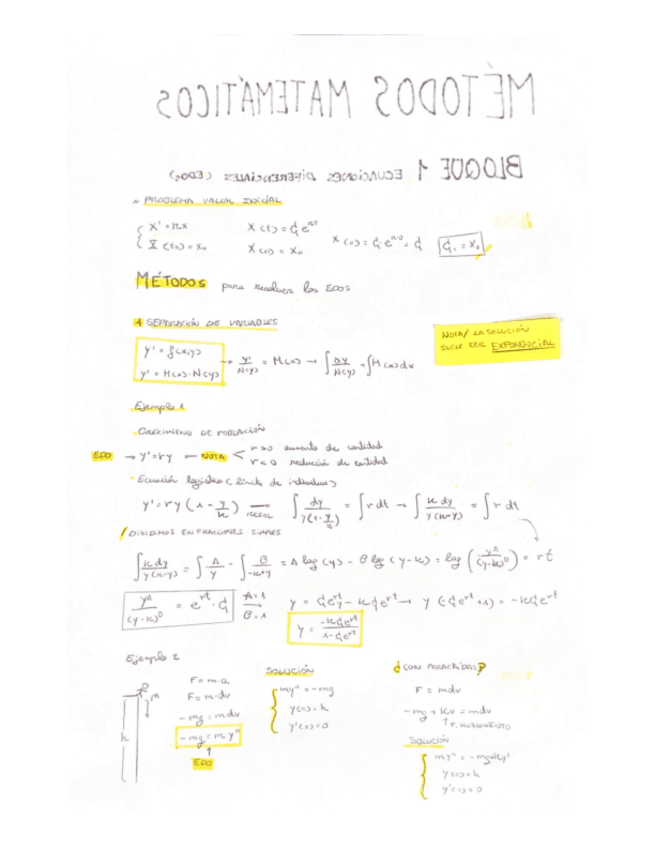 MÉTODOS MATEMÁTICOS
BLOQUE 1 ECUACIONES DIFERENCIALES (EDOS)
PROBLEMA VALOR INICIAL
X' = rX X(t) = C₁e^rt
X(t₀) = X₀ X(0) = X₀ X(0) = C₁e^r·0 = C₁ C₁ = X₀
MÉTODOS para resolver las EDOS
1 SEPARACIÓN DE VARIABLES
NOTA/ LA SOLUCIÓN
SUELE SER EXPONENCIAL
y' = f(x,y)
y' = M(x)·N(y) → y'/N(y) = M(x) → ∫ dy/N(y) = ∫M(x)dx
Ejemplo 1
· CRECIMIENTO DE POBLACIÓN
EDO → y' = ry ← NOTA < r>0 aumento de cantidad
r<0 reducción de cantidad
· Ecuación logística (límite de individuos)
y' = ry(1 - y/k) ∫ dy/y(1-y/k) = ∫r dt → ∫ k dy/y(k-y) = ∫r dt
/ DIVIDIMOS EN FRACCIONES SIMPLES
∫ k dy/y(k-y) = ∫ A/y - ∫ B/-k+y = A log(y) - B log(y-k) = log(y^A/(y-k)^B) = rt
y^A/(y-k)^B = e^rt · C₁ A=1 B=1 → y = C₁e^rt y - kC₁e^rt → y(-C₁e^rt+1) = -kC₁e^rt
y = -kC₁e^rt/1-C₁e^rt
Ejemplo 2
h
F = m·a
F = m·dv
-mg = mdv
-mg = my''
↑
EDO
SOLUCIÓN
my'' = -mg
y(0) = h
y'(0) = 0
¿CON PARACAÍDAS?
F = mdv
-mg + kv = mdv
↑ F. ROZAMIENTO
SOLUCIÓN
y(0) = h
y'(0) = 0